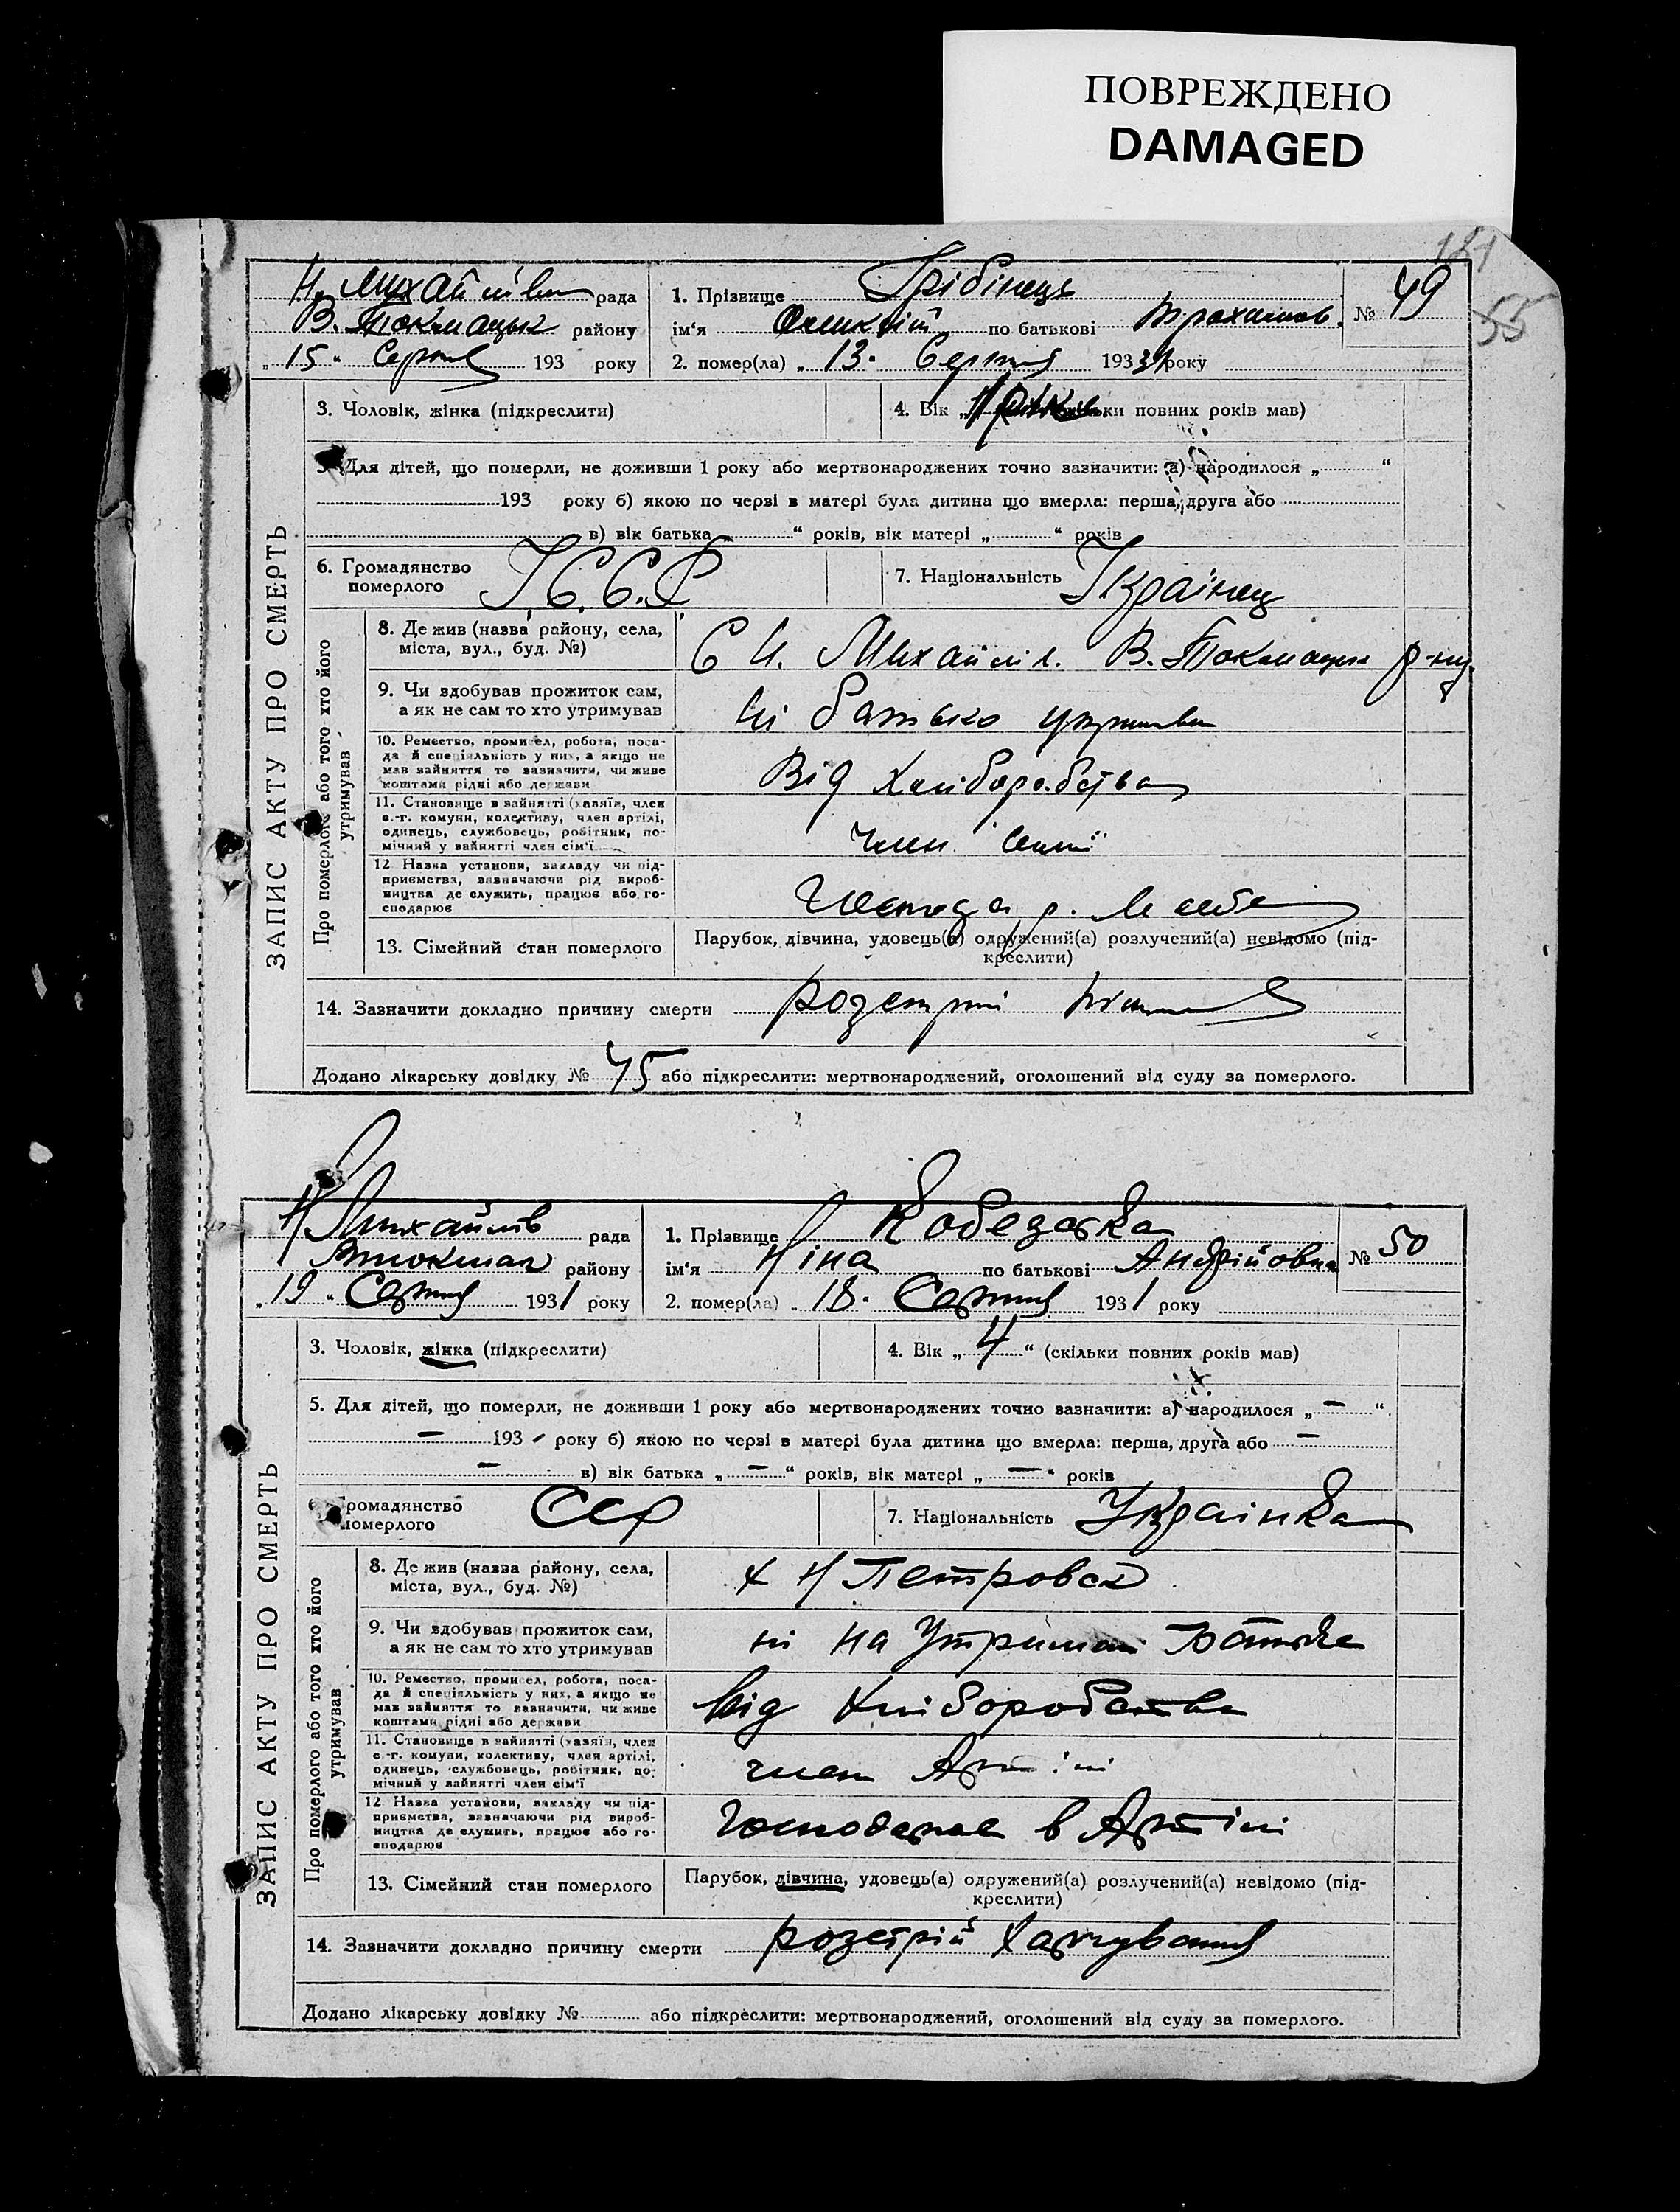 ПОВРЕЖДЕНО
DAMAGED
55
Н. Михайлів рада
В. Токмацьк району
„ 15 “ Серпня 193 року
1. Прізвище Грібінець
ім‘я по батькові
2. помер(ла) „ 13 Серпня 193 року
№ 49
3. Чоловік, жінка (підкреслити)
4. Вік „ ки повних років мав)
Для дітей, що померли, не доживши 1 року або мертвонароджених точно зазначити: а) народилося „ “
193 року б) якою по черві в матері була дитина що вмерла: перша, друга або
в) вік батька “ років, вік матері „ “ років
6. Громадянство
померлого У.С.С.Р.
7. Національність Українец
ЗАПИС АКТУ ПРО СМЕРТЬ
Про померлого або того хто його
утримував
8. Де жив (назва району, села,
міста, вул., буд. №)
С Н. Михайлів. В. Токмацьк р-ну
9. Чи здобував прожиток сам,
а як не сам то хто утримував
ні батько
10. Ремество, промисел, робота, поса-
да й спеціяльність у них, а якщо не
мав зайняття то зазначити, чи живе
коштами рідні або держави
Від хліборобства
11. Становище в зайнятті (хазяїн, член
с.-г. комуни, колективу, член артілі,
одинець, службовець, робітник, по-
мічний у зайнятті член сім‘ї
член сімї
12 Назва установи, закладу чи під-
приємства, зазначаючи рід вироб-
ництва де служить, працює або го-
сподарює
13. Сімейний стан померлого
Парубок, дівчина, удовець(а) одружений(а) розлучений(а) невідомо (під-
креслити)
14. Зазначити докладно причину смерти
Додано лікарську довідку № 45 або підкреслити: мертвонароджений, оголошений від суду за померлого.
Н Михайлів рада
Втокмак району
„ 19 “ Серпня 1931 року
1. Прізвище
ім‘я Ніна по батькові Андрійовна
2. помер(ла) „ 18 Серпня 1931 року
№ 50
3. Чоловік, жінка (підкреслити)
4. Вік „ 4 “ (скільки повних років мав)
5. Для дітей, що померли, не доживши 1 року або мертвонароджених точно зазначити: а) народилося „ — “
— 193 - року б) якою по черві в матері була дитина що вмерла: перша, друга або —
— в) вік батька „ — “ років, вік матері „ — “ років
Громадянство
померлого ССР
7. Національність Українка
ЗАПИС АКТУ ПРО СМЕРТЬ
Про померлого або того хто його
утримував
8. Де жив (назва району, села,
міста, вул., буд. №)
х Н Петровск
9. Чи здобував прожиток сам,
а як не сам то хто утримував
ні на утриман батьке
10. Ремество, промисел, робота, поса-
да й спеціяльність у них, а якщо не
мав зайняття то зазначити, чи живе
коштами рідні або держави
від хліборобства
11. Становище в зайнятті (хазяїн, член
с.-г. комуни, колективу, член артілі,
одинець, службовець, робітник, по-
мічний у зайнятті член сім‘ї
член Артілі
12 Назва установи, закладу чи під-
приємства, зазначаючи рід вироб-
ництва де служить, працює або го-
сподарює
господарює в Артілі
13. Сімейний стан померлого
Парубок, дівчина, удовець(а) одружений(а) розлучений(а) невідомо (під-
креслити)
14. Зазначити докладно причину смерти розстрій харчування
Додано лікарську довідку № або підкреслити: мертвонароджений, оголошений від суду за померлого.